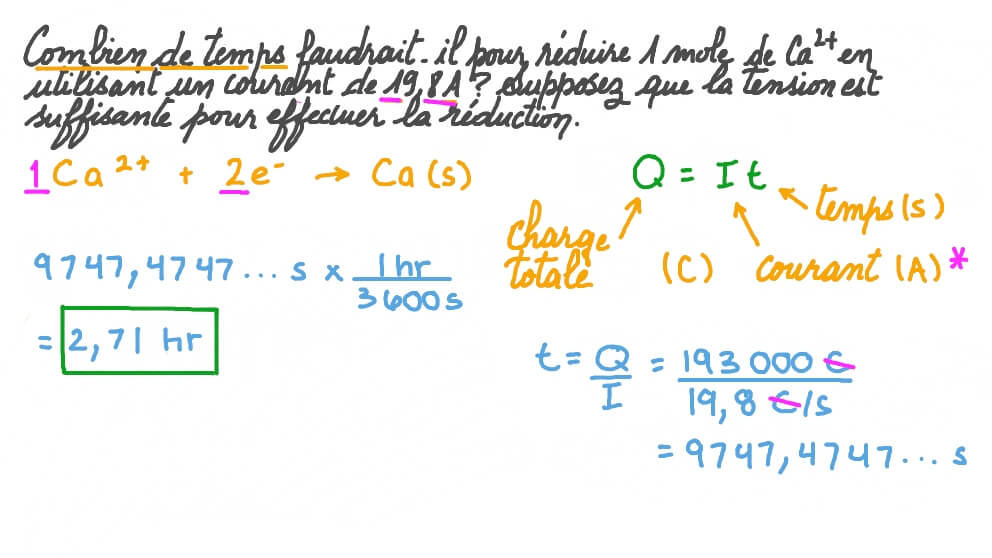 Combien de temps faudrait-il pour réduire 1 mole de Ca²⁺ en
utilisant un courant de 19,8 A ? Supposez que la tension est
suffisante pour effectuer la réduction.
1Ca²⁺ + 2e⁻ → Ca(s)
Q = It
temps(s)
charge
totale
(C)
courant (A)*
9747,4747... s × 1hr / 3600s
= 2,71 hr
t = Q/I = 193 000 C / 19,8 C/s
= 9747,4747... s